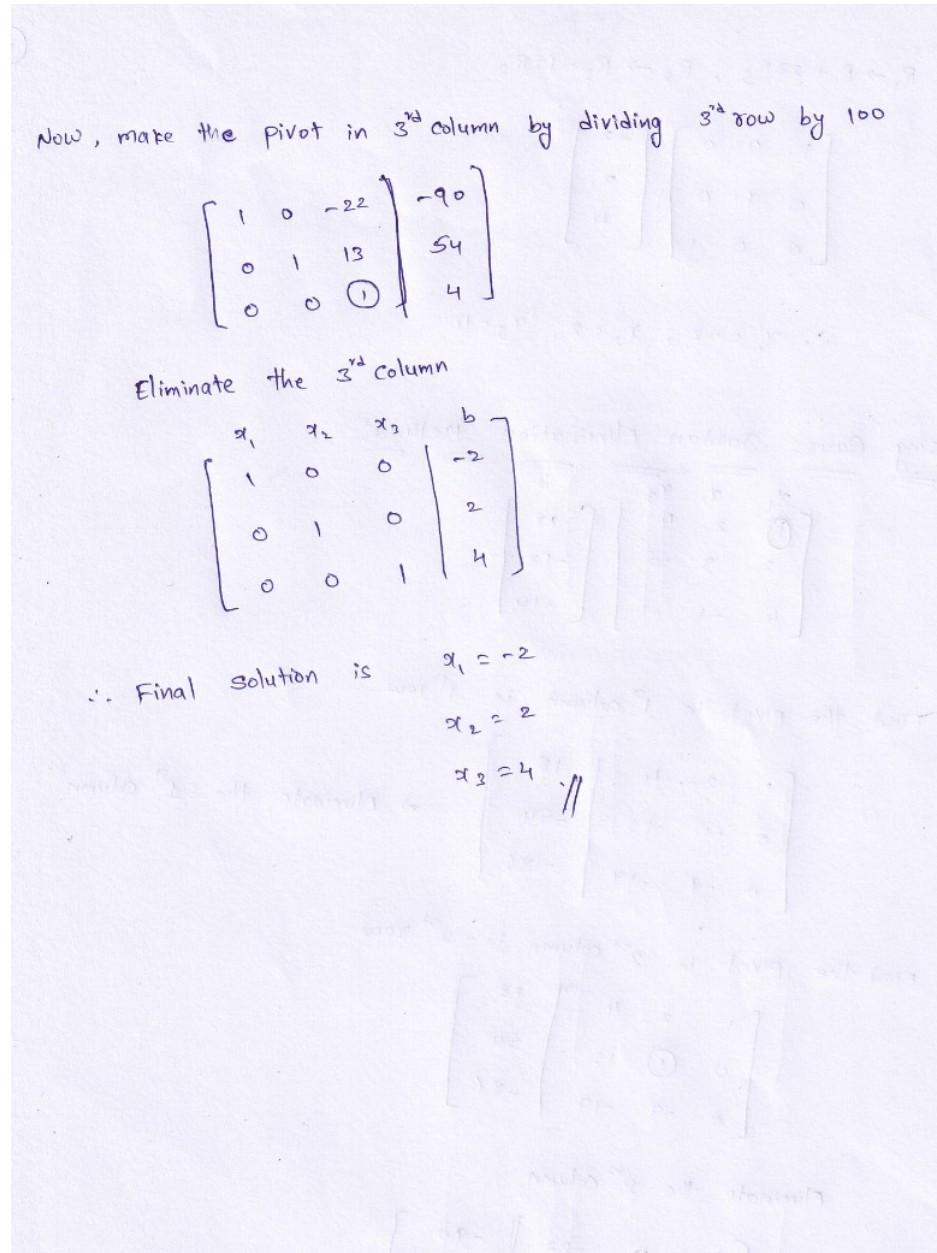 Now, make the pivot in 3rd column by dividing 3rd row by 100
1 0 -22 | -90
0 1 13 | 54
0 0 1 | 4
Eliminate the 3rd column
x1 x2 x3 b
1 0 0 | -2
0 1 0 | 2
0 0 1 | 4
∴ Final solution is x1 = -2
x2 = 2
x3 = 4 //